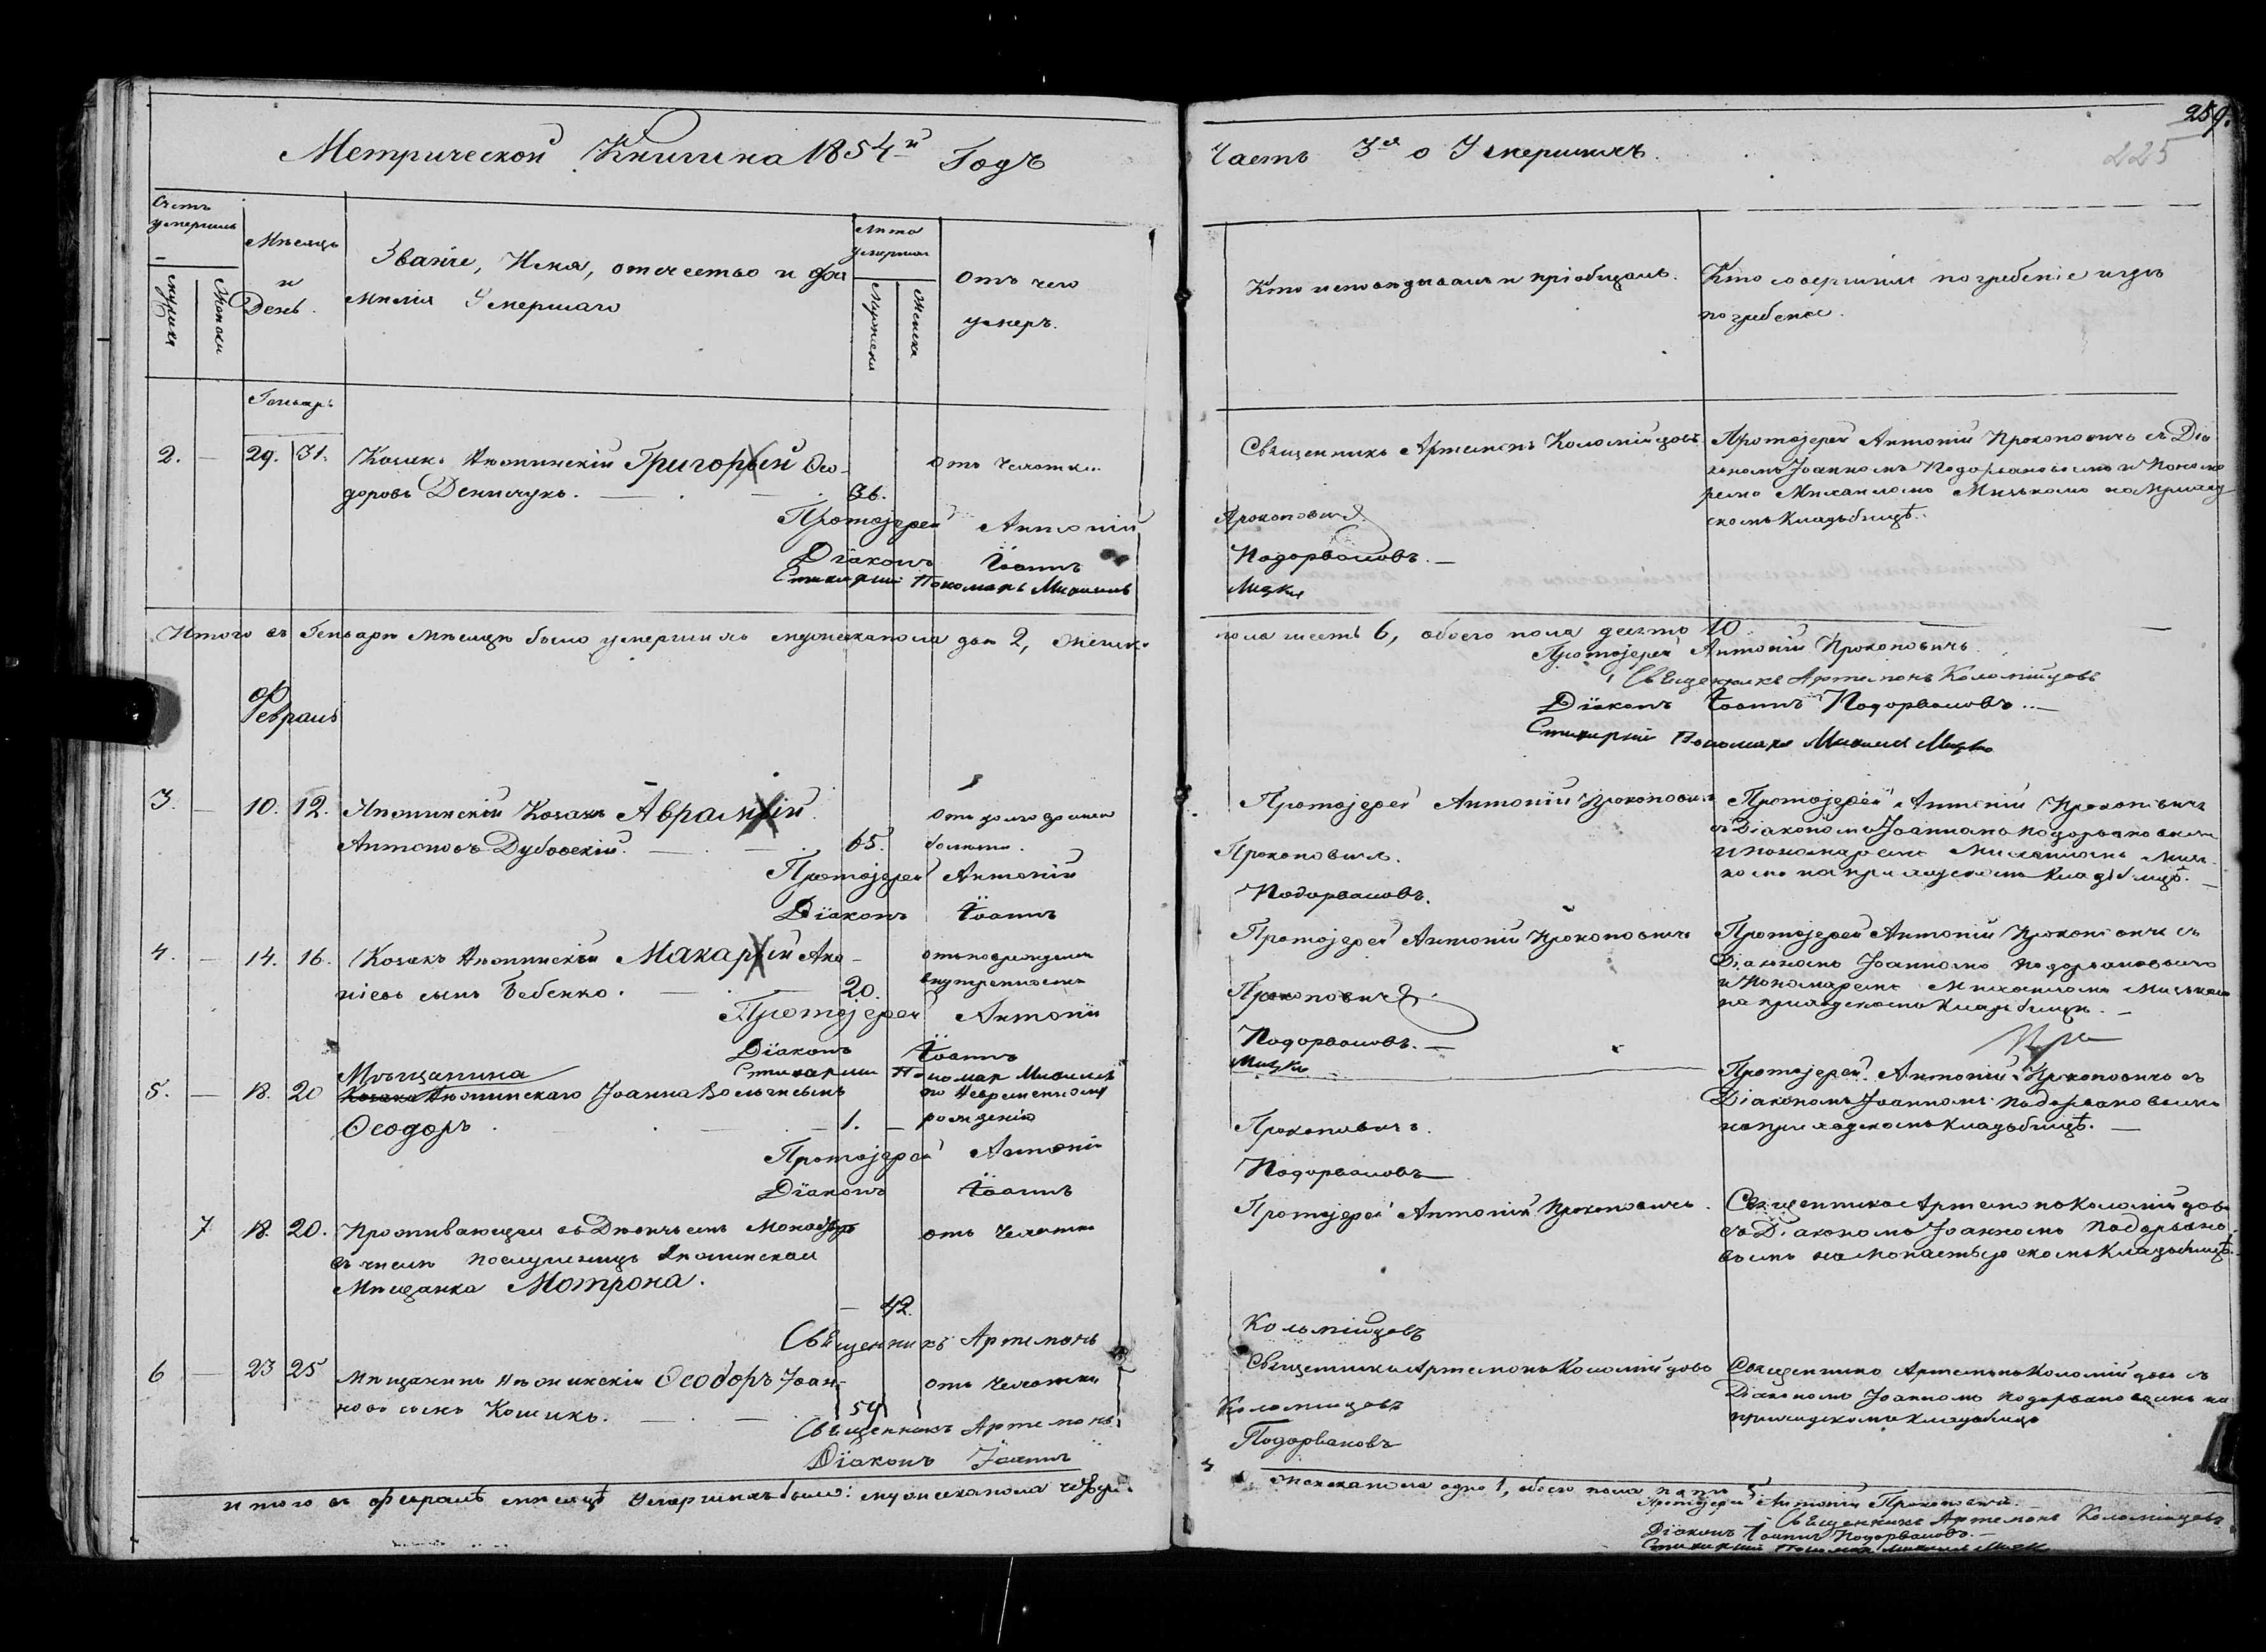 259.
225
Метрической Книги на 1854й Годъ
Часть 3я о Умершихъ.
Счетъ умершихъ
Мужски
Женски
Мѣсяцъ
и
День.
Званіе, Имя, отечество и фа
милія Умершаго
Лѣта умершаго
Мужеска
Женска
Отъ чего
умеръ.
Кто исповѣдывалъ и пріобщалъ.
Кто совершилъ погребеніе и гдѣ
погребены.
Генварь
2. — 29. 31. Козакъ Нѣжинскій Григорій Ѳео-
доровъ Демичукъ. — 36.
отъ чахотки.
Священникъ Артемонъ Коломійцовъ
Протоіерей Антоній Прокоповичъ съ Діа
кономъ Іоанномъ Подорвановымъ и Понома
ремъ Михаиломъ Мицькомъ на приход
скомъ кладбищѣ.
Протоіерей Антоній Прокоповичъ
Діаконъ Іоаннъ Подорвановъ. —
Стихарный Пономарь Михаилъ Мицко
Итого въ Генварѣ мѣсяцѣ было умершихъ мужеска пола два 2, женск.
пола шесть 6, обоего пола 10
Протоіерей Антоній Прокоповичъ.
Священникъ Артемонъ Коломійцовъ
Діаконъ Іоаннъ Подорвановъ. —
Стихарній Пономарь Михаилъ Мицко
Февраль
3. — 10. 12. Нѣжинскій Козакъ Аврамій
Антоновъ Дубовскій. — 65.
Протоіерей Антоній Прокоповичъ
Протоіерей Антоній Прокоповичъ
съ Діакономъ Іоанномъ Подорвановымъ
и пономаремъ Михаиломъ Миць-
комъ на приходскомъ кладбищѣ. —
Протоіерей Антоній Прокоповичъ.
Діаконъ Іоаннъ Подорвановъ.
4. — 14. 16. Козакъ Нѣжинскій Макарій
сынъ Бебенко. — 20.
отъ поврежденія
внутренности
Протоіерей Антоній Прокоповичъ
Протоіерей Антоній Прокоповичъ съ
Діакономъ Іоанномъ Подорвановымъ
и Пономаремъ Михаиломъ Мицькомъ
на приходскомъ кладбищѣ. —
Протоіерей Антоній Прокоповичъ.
Діаконъ Іоаннъ Подорвановъ. —
Стихарный Пономар Михаилъ Мицко
Мѣщанина
5. — 18. 20 Козака Нѣжинскаго Іоанна сынъ
Ѳеодоръ — 1. —
рожденію
Протоіерей Антоній Прокоповичъ съ
Діакономъ Іоанномъ Подорвановымъ
на приходскомъ кладбищѣ. —
Протоіерей Антоній Прокоповичъ.
Діаконъ Іоаннъ Подорвановъ
7 18. 20. Проживающая въ Дѣвичьемъ Монастырѣ
въ числѣ послушницъ Нѣжинская
Мѣщанка Мотрона.
— 42.
отъ чахотки
Протоіерей Антоній Прокоповичъ.
Священникъ Артемонъ Коломійцовъ
съ Діакономъ Іоанномъ Подорвано
вымъ на монастырскомъ кладбищѣ.
Священникъ Артемонъ Коломійцовъ
6 — 23 25 Мѣщанинъ Нѣжинскій Ѳеодоръ Іоан-
новъ сынъ Кошикъ. — 54
отъ чахотки
Священникъ Артемонъ Коломійцовъ
Священникъ Артемонъ Коломійцовъ съ
Діакономъ Іоанномъ Подорвановымъ на
приходскомъ кладбищѣ
Священникъ Артемонъ Коломійцовъ
Діаконъ Іоаннъ Подорвановъ
Итого въ Февралѣ мѣсяцѣ умершихъ было: мужеска пола четыре.
женска пола одно 1, обоего пола пять 5
Протоіерей Антоній Прокоповичъ.
Священникъ Артемонъ Коломійцовъ
Діаконъ Іоаннъ Подорвановъ. —
Стихарный Пономарь Михаилъ Мицко